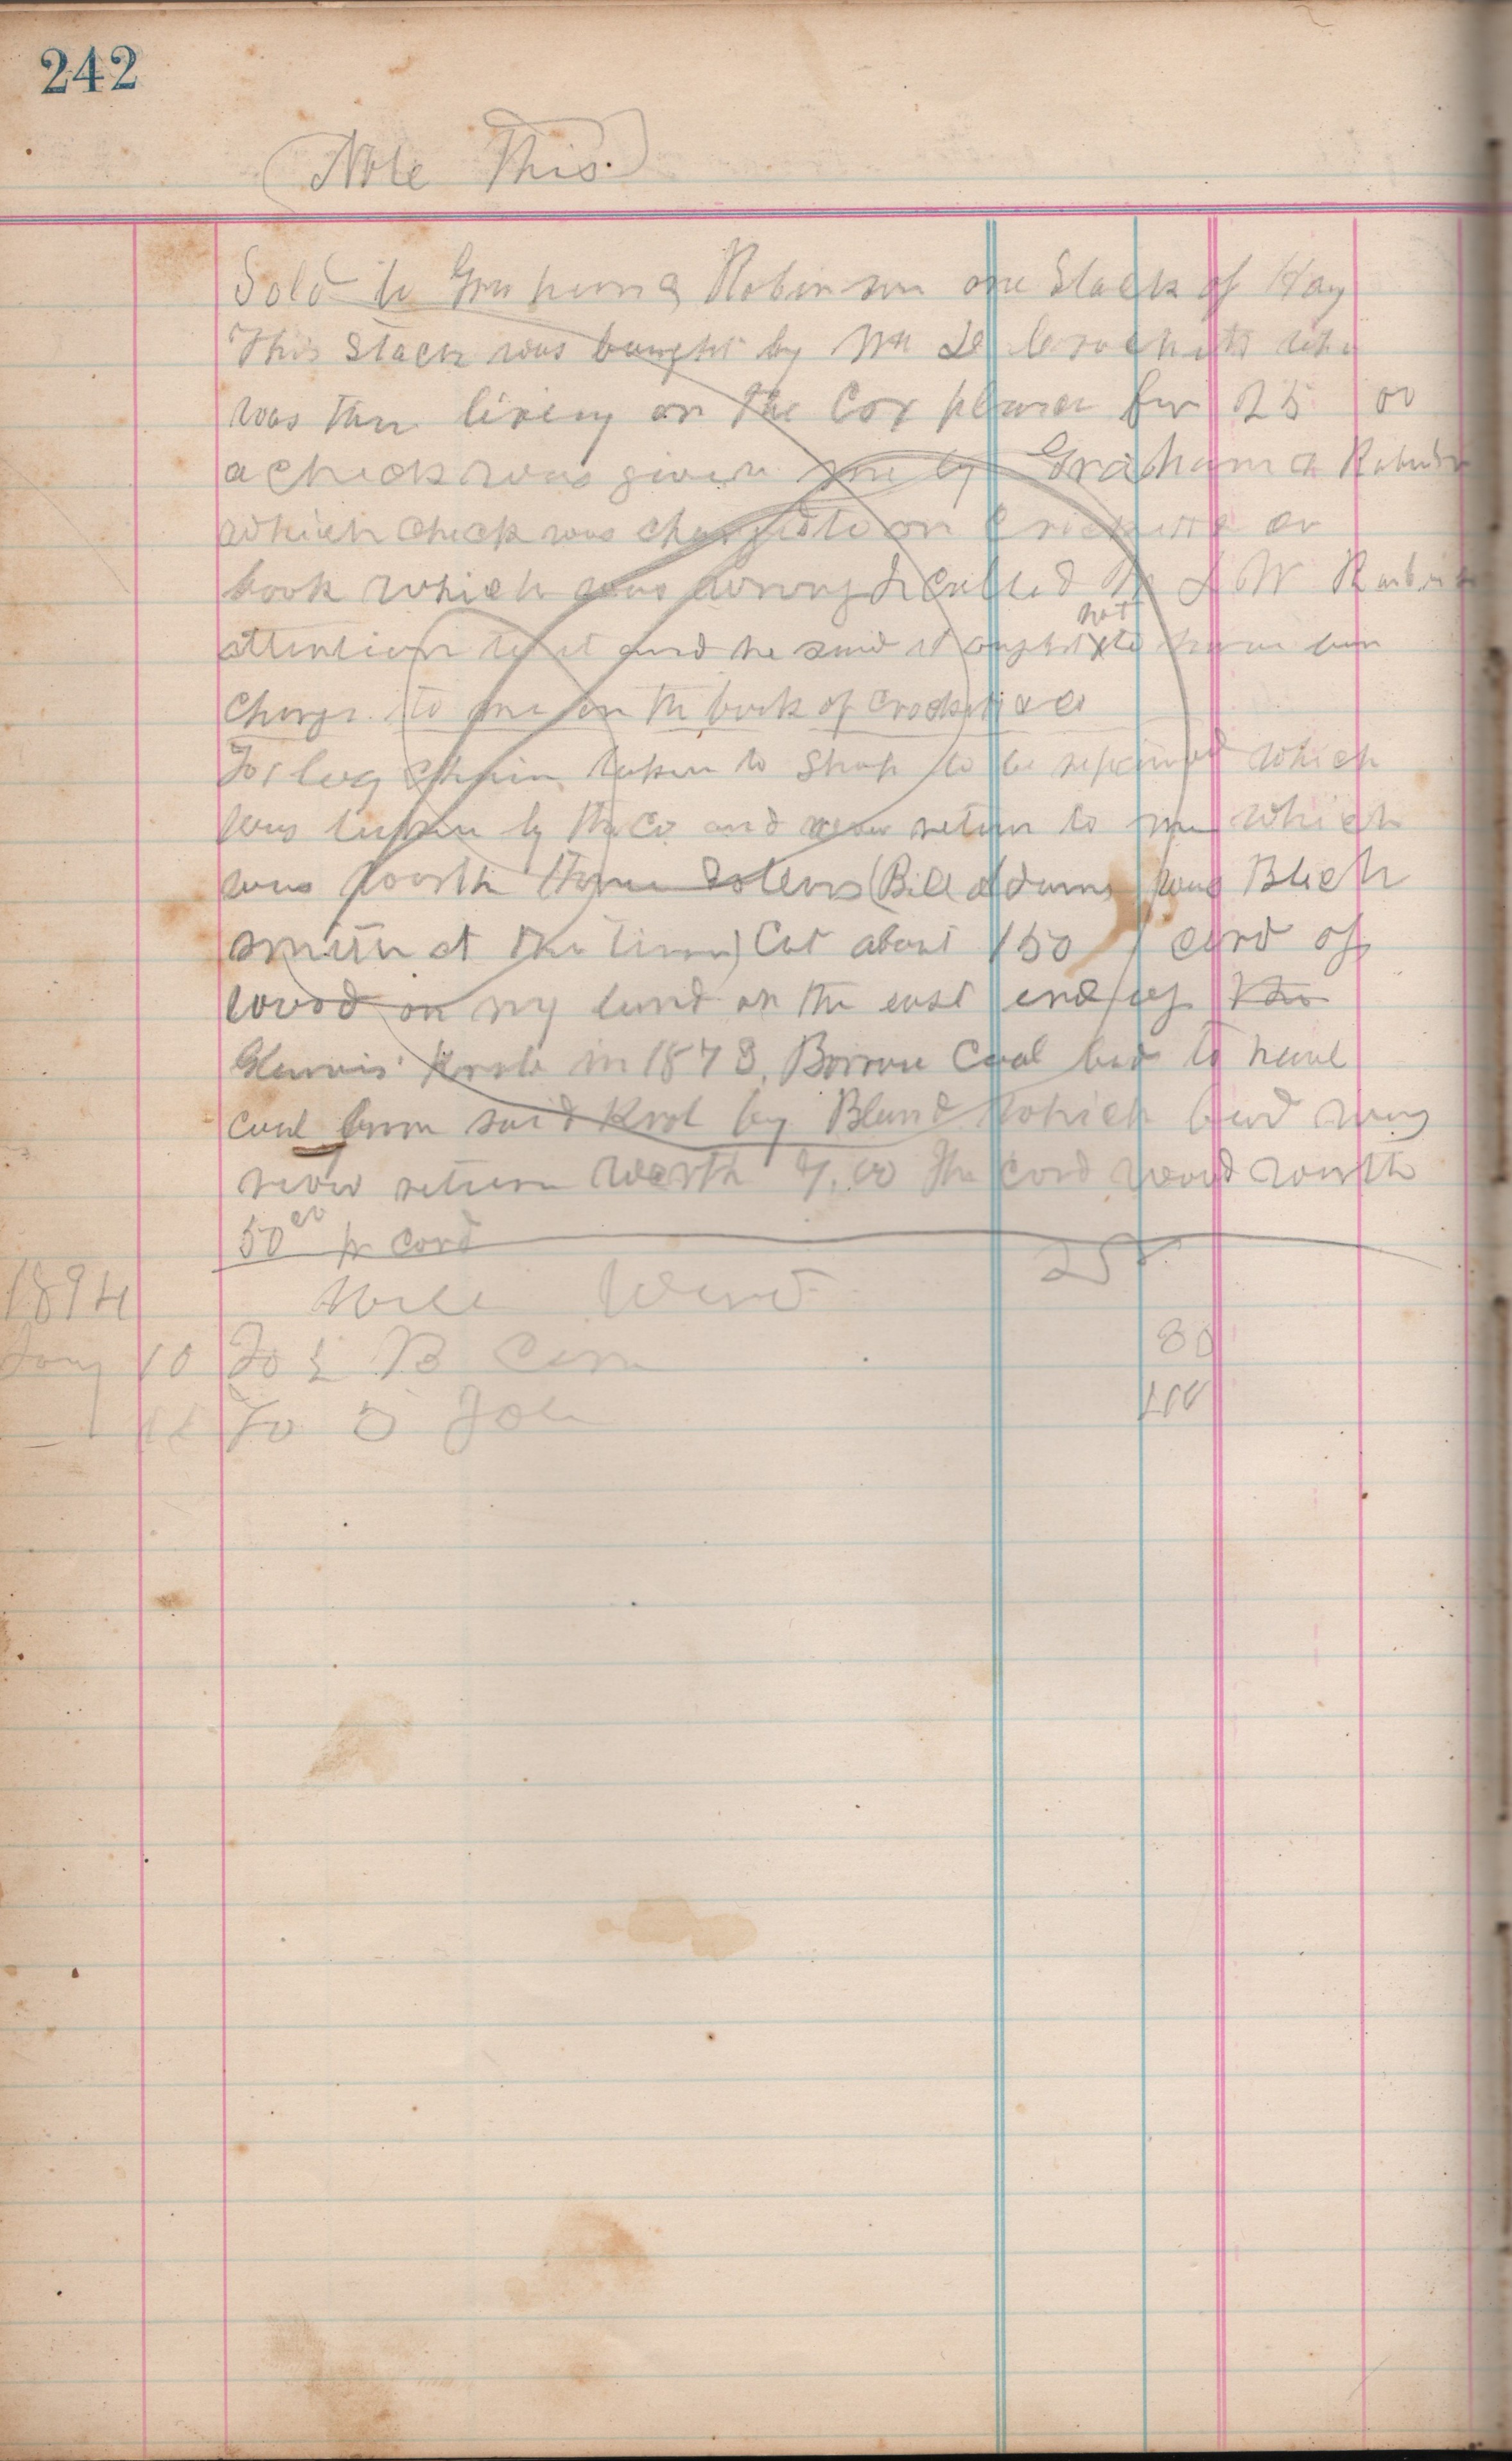 242
Note This
Sold to Graham & Robinson one Stack of Hay
This Stack was bought by Wm who
was then living on the Cox place for 25 00
a check was given me by Graham & Robinson
which check was charged to on
book which was wrong I called Mr J W
attention to it and he said it ought not to have been
charge to me on the book of
To 1 log chain taken to Shop to be repaired which
was taken by the Co and never return to me which
was worth three dolers (Bill Adams was Black
smith at the time) Cut about 150 cord of
wood on my land on the east end of the
in 1873. Borrow Coal bed to haul
coal from said by Bland which bed was
never return worth 7.00 The cord wood worth
50 pr cord
25
1894 Will Ward
Jany 10 To ½ B Corn 30
To